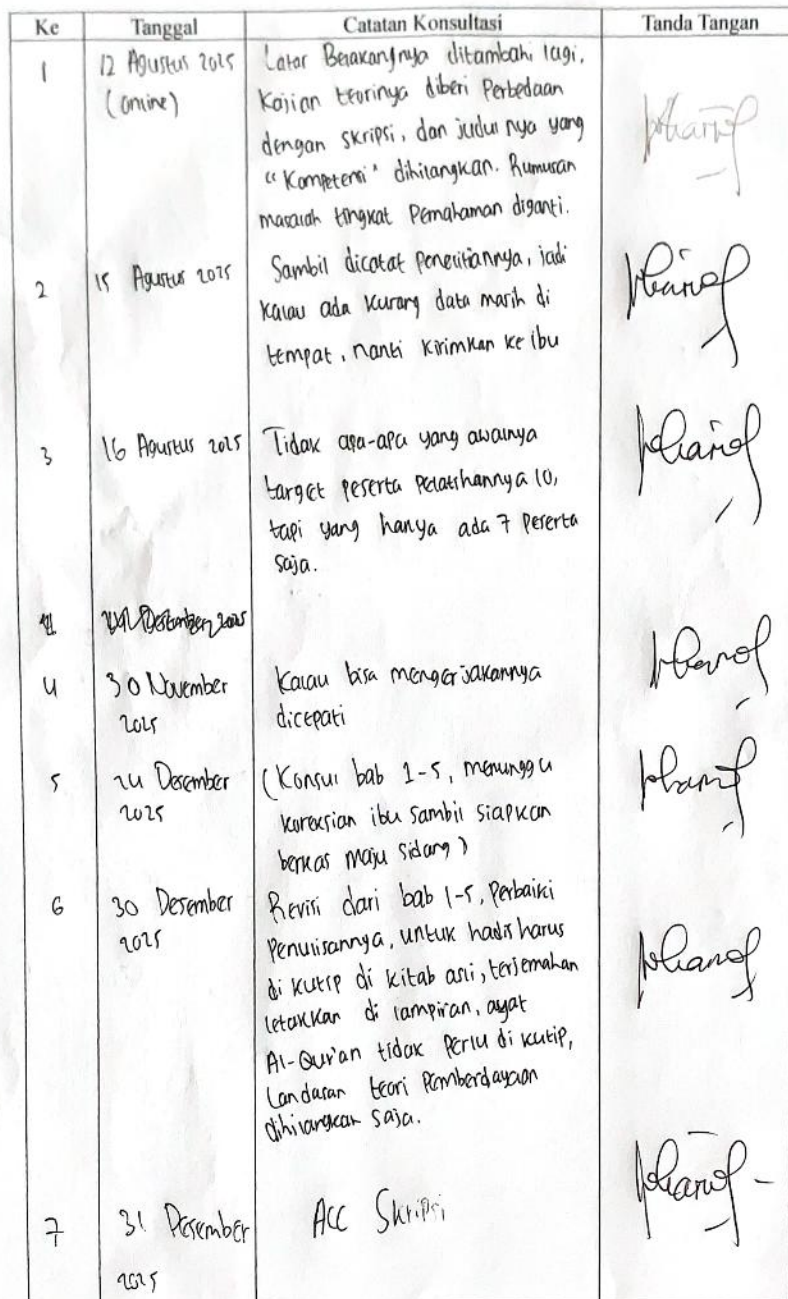 Ke Tanggal Catatan Konsultasi Tanda Tangan
1 12 Agustus 2025 Latar Belakangnya ditambahi lagi,
(online) Kajian teorinya diberi Perbedaan
dengan skripsi, dan judulnya yang
"Kompetensi" dihilangkan. Rumusan
masalah tingkat Pemahaman diganti.
2 15 Agustus 2025 Sambil dicatat penelitiannya, jadi
kalau ada kurang data masih di
tempat, nanti kirimkan ke ibu
3 16 Agustus 2025 Tidak apa-apa yang awalnya
target peserta Pelatihannya 10,
tapi yang hanya ada 7 Peserta
saja.
4 30 November Kalau bisa mengerjakannya
2025 dicepati
5 24 Desember (Konsul bab 1-5, menunggu
2025 koreksian ibu sambil siapkan
berkas maju sidang)
6 30 Desember Revisi dari bab 1-5, Perbaiki
2025 Penulisannya, untuk hadis harus
di kutip di kitab asli, terjemahan
letakkan di lampiran, ayat
Al-Qur'an tidak Perlu di kutip,
Landasan teori Pemberdayaan
dihilangkan saja.
7 31 Desember ACC Skripsi
2025